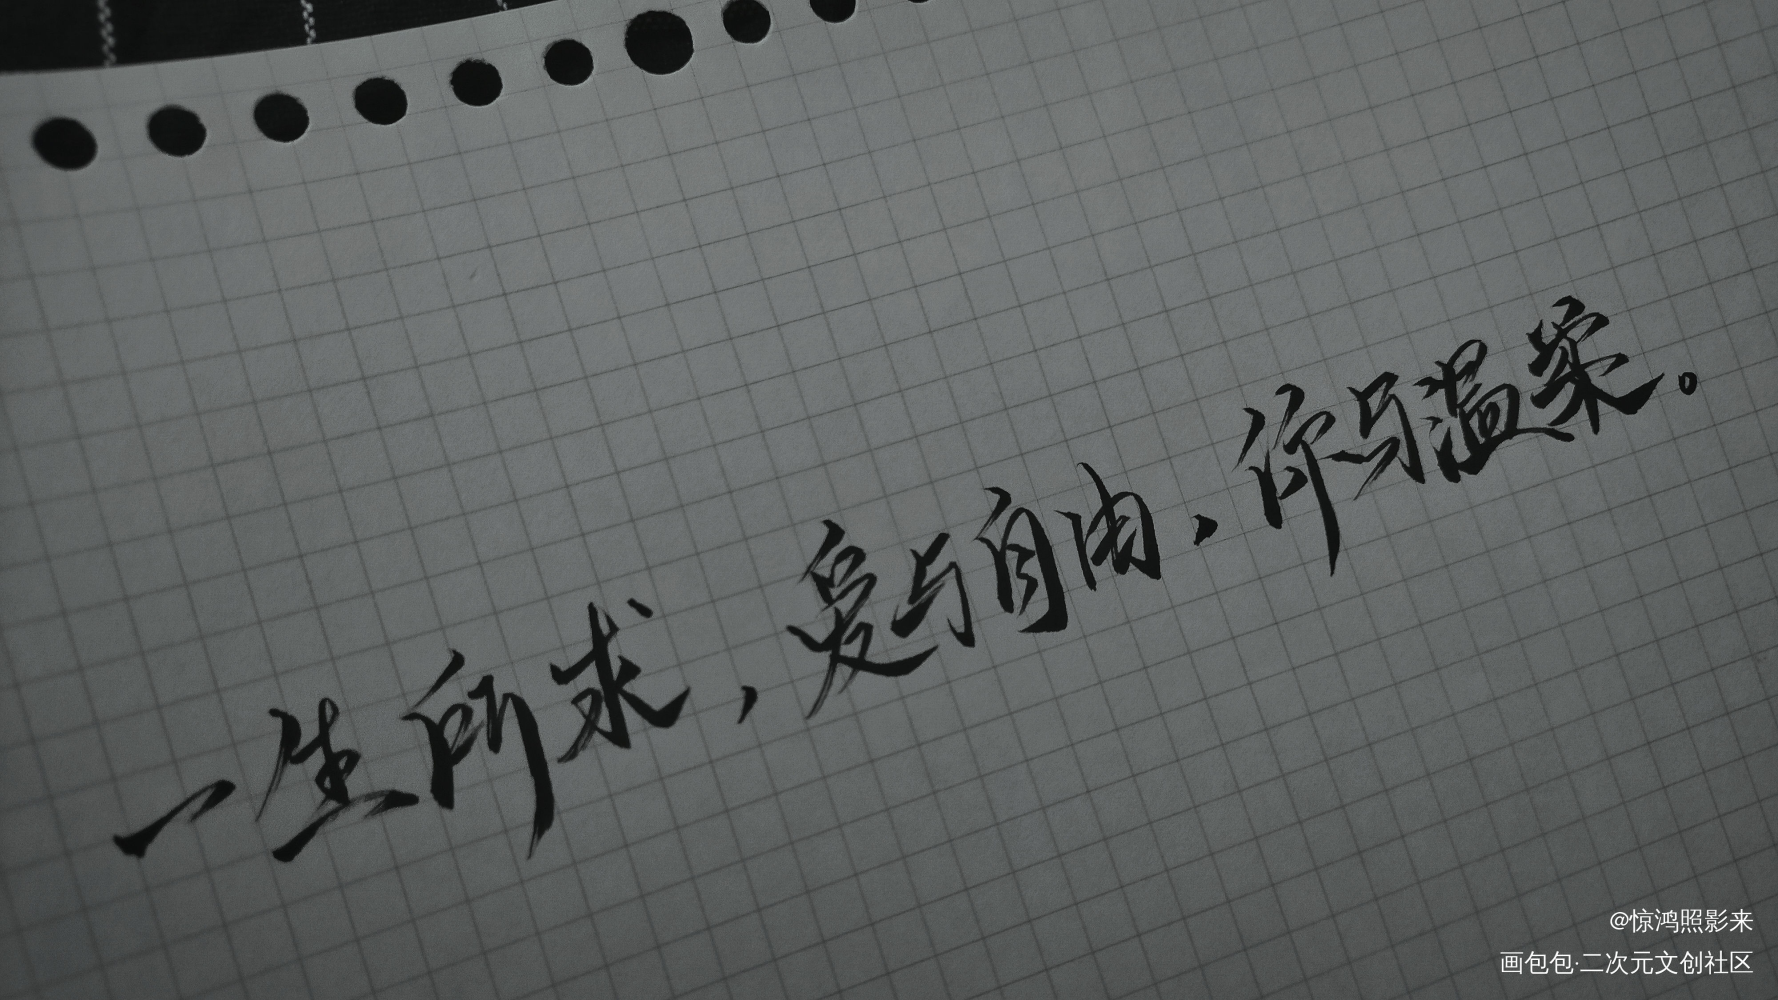 一生所求，爱与自由，你与温柔。
@惊鸿照影来
画包包·二次元文创社区